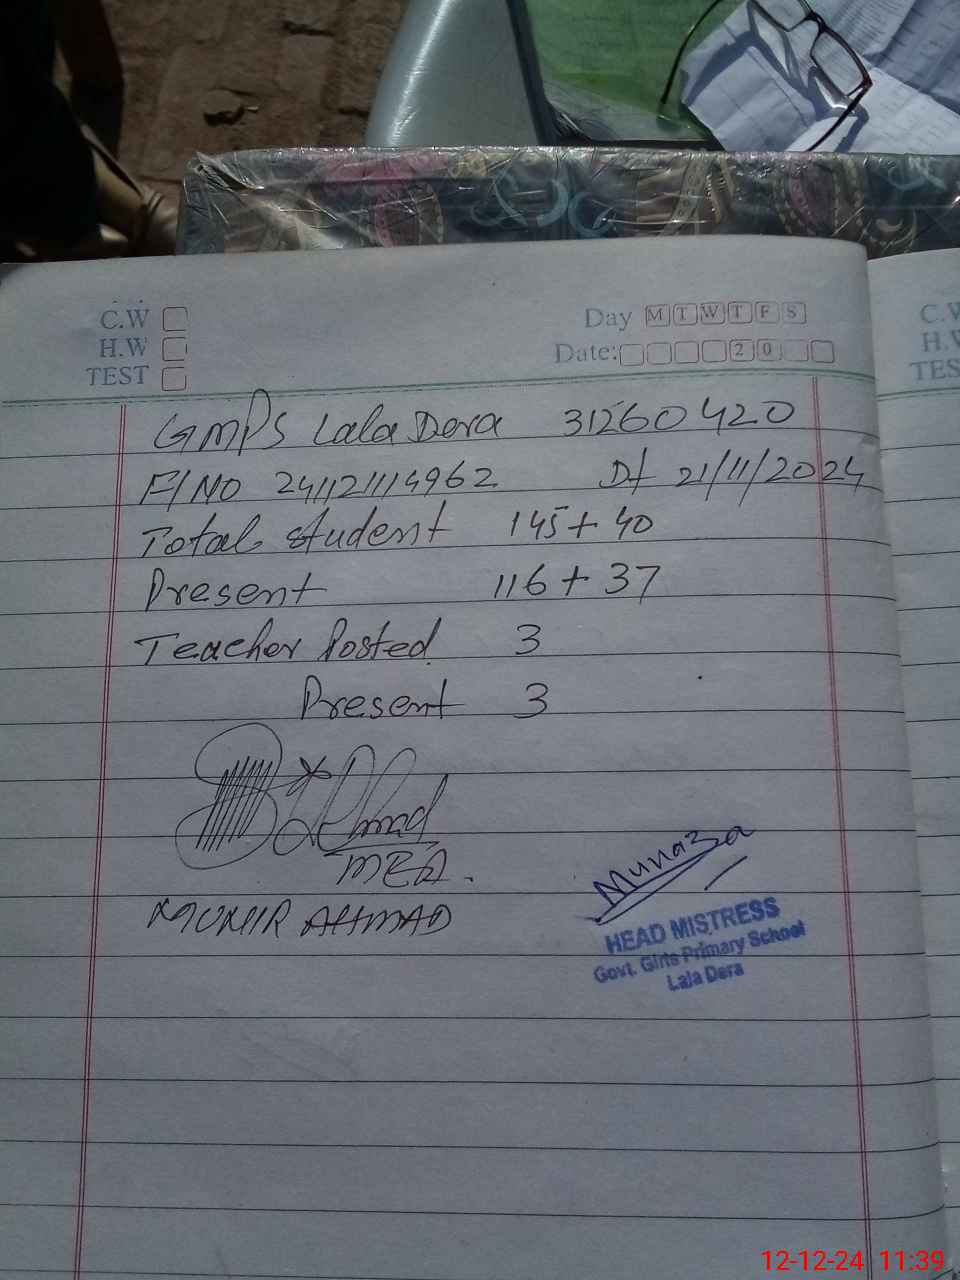 C.W
H.W
TEST
Day M T W T F S
Date: 2 0
C.W
H.W
TES
GMPS Lala Dera 31260420
F/NO 241121114962 Dt 21/11/2024
Total student 145+40
Present 116+37
Teacher Posted 3
Present 3
Ahmad
MEA.
MUNIR AHMAD
Munaza
HEAD MISTRESS
Govt. Girls Primary School
Lala Dera
12-12-24 11:39